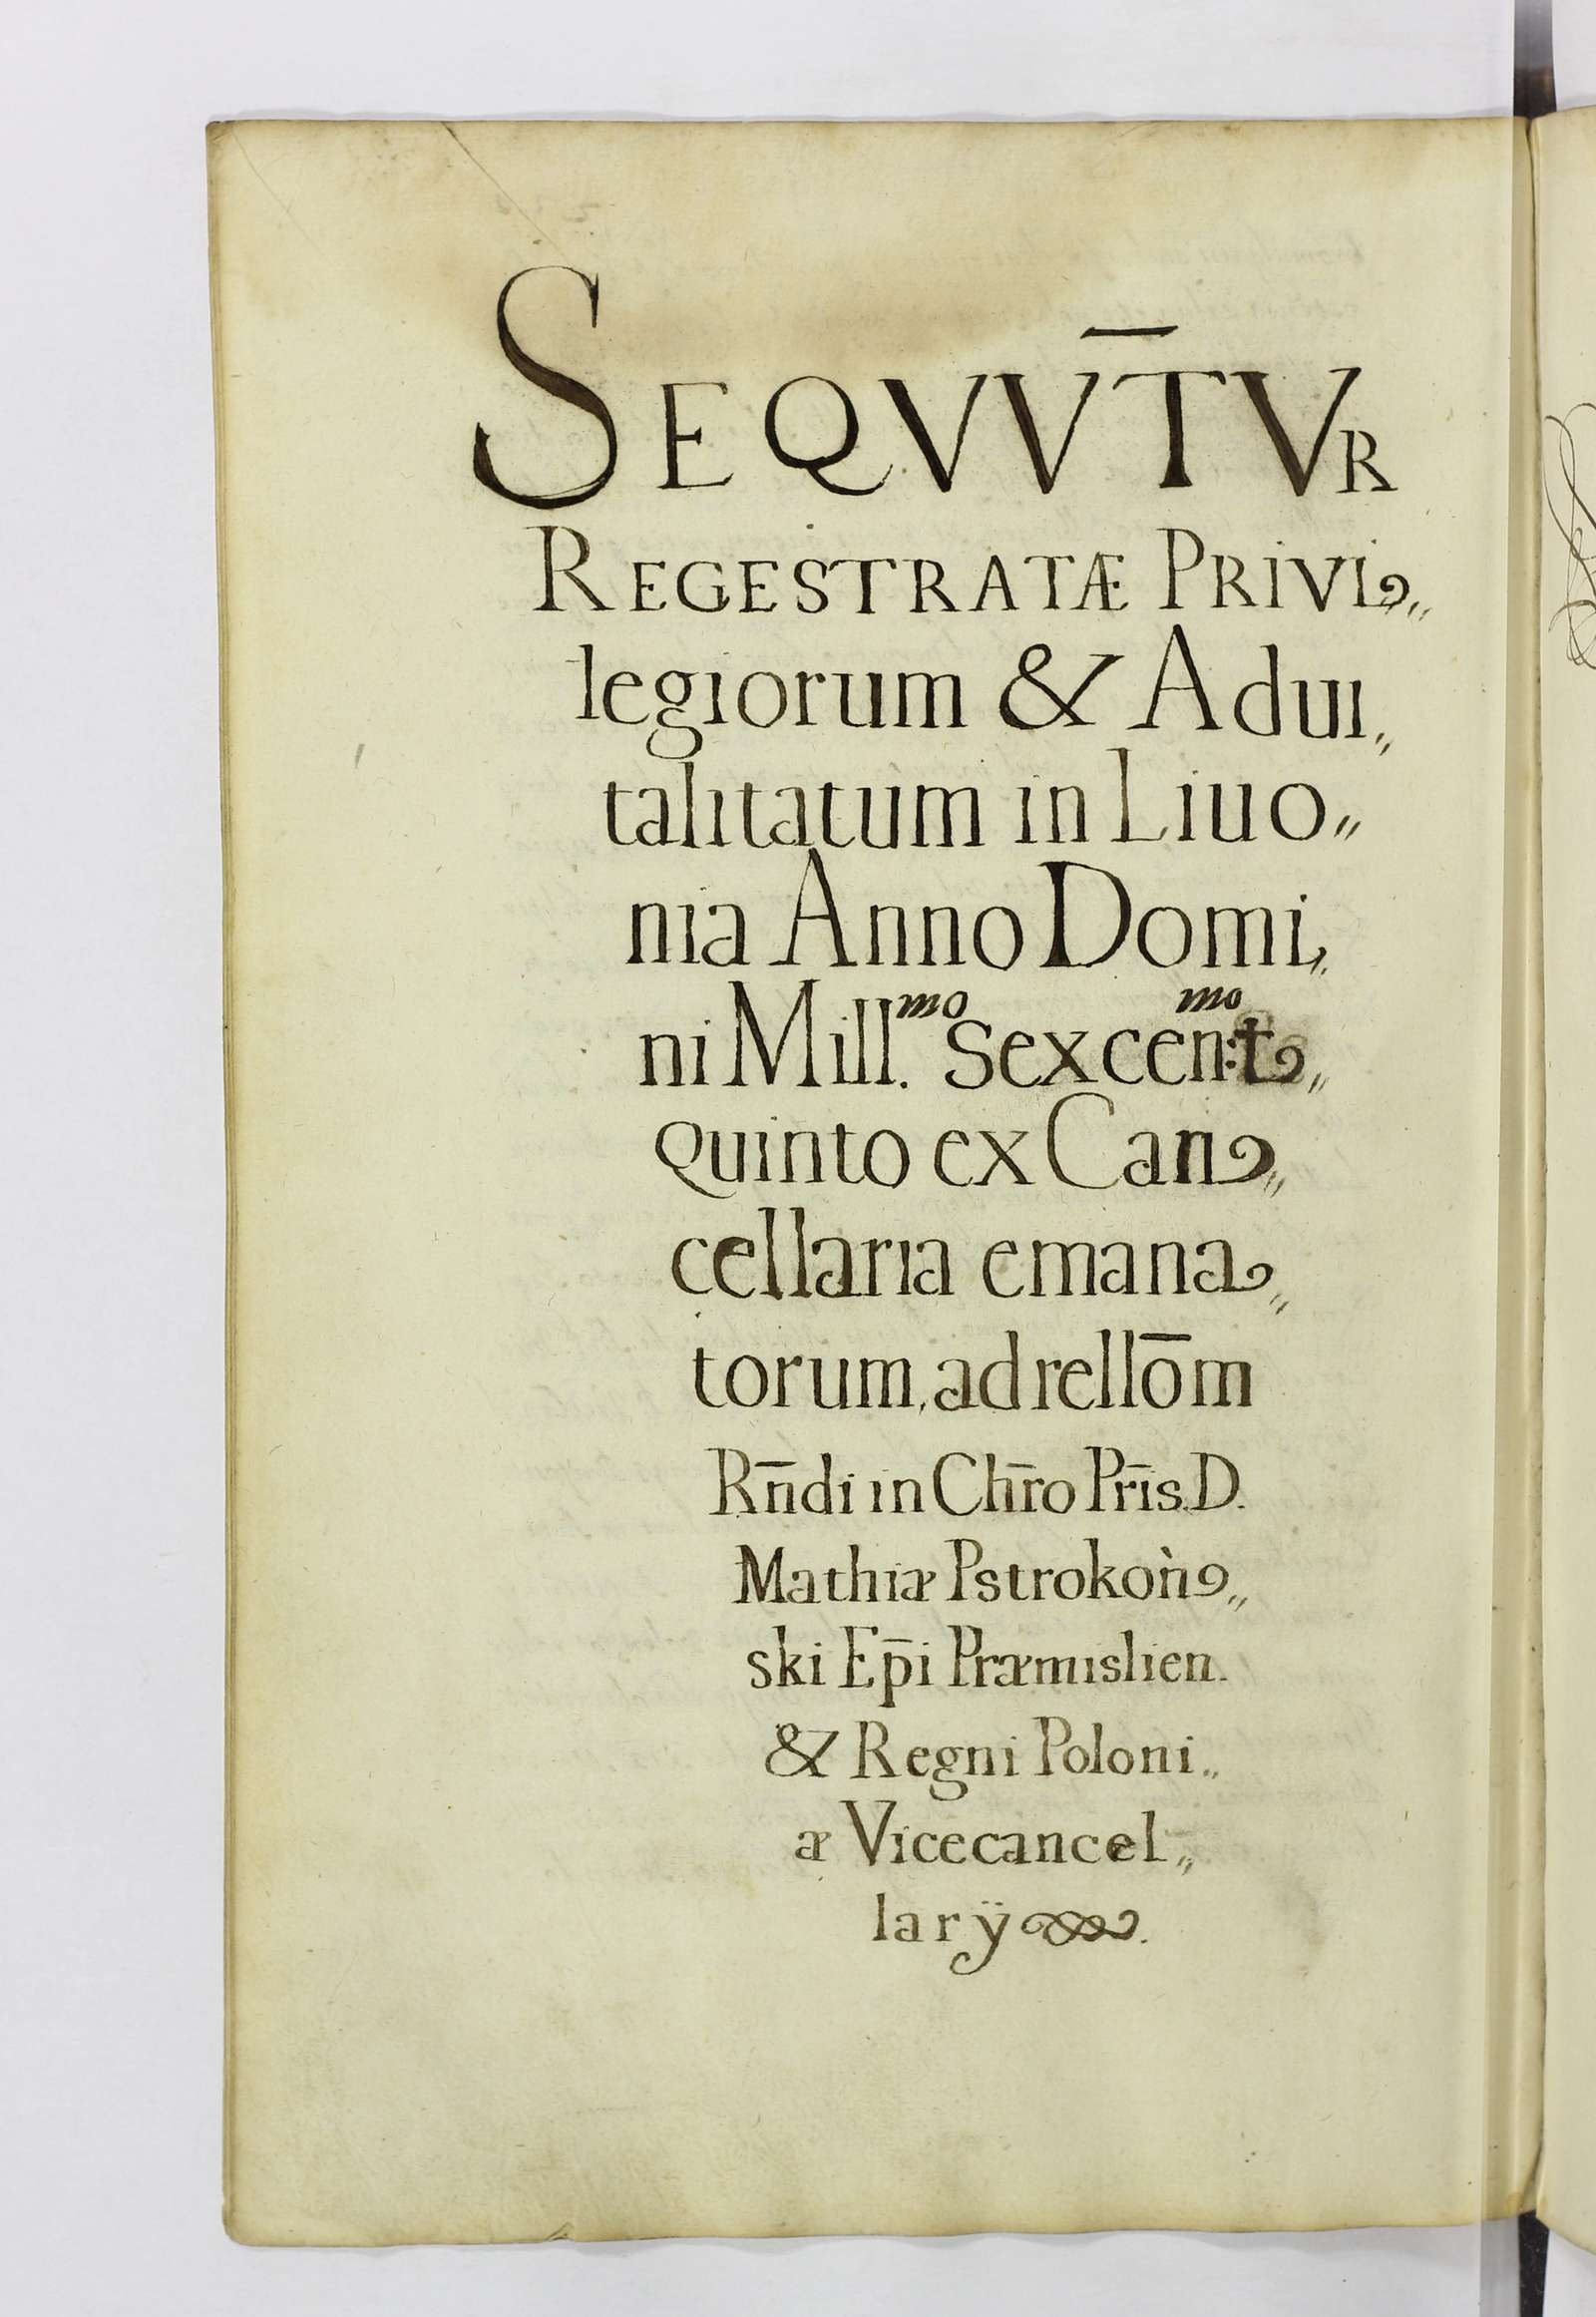 SEQVV̅TVR
REGESTRATÆ PRIVI„
legiorum & Adui„
talitatum in Liuo„
nia Anno Domi„
ni Mill.mo Sexcen:tmo„
quinto ex Can„
cellaria emana„
torum, ad rellōm
Rn̄di in Chr̄o Pr̄is. D.
Mathiæ Pstrokoǹ„
ski Ep̄i Præmislien.
& Regni Poloni„
æ Vicecancel„
larÿ.